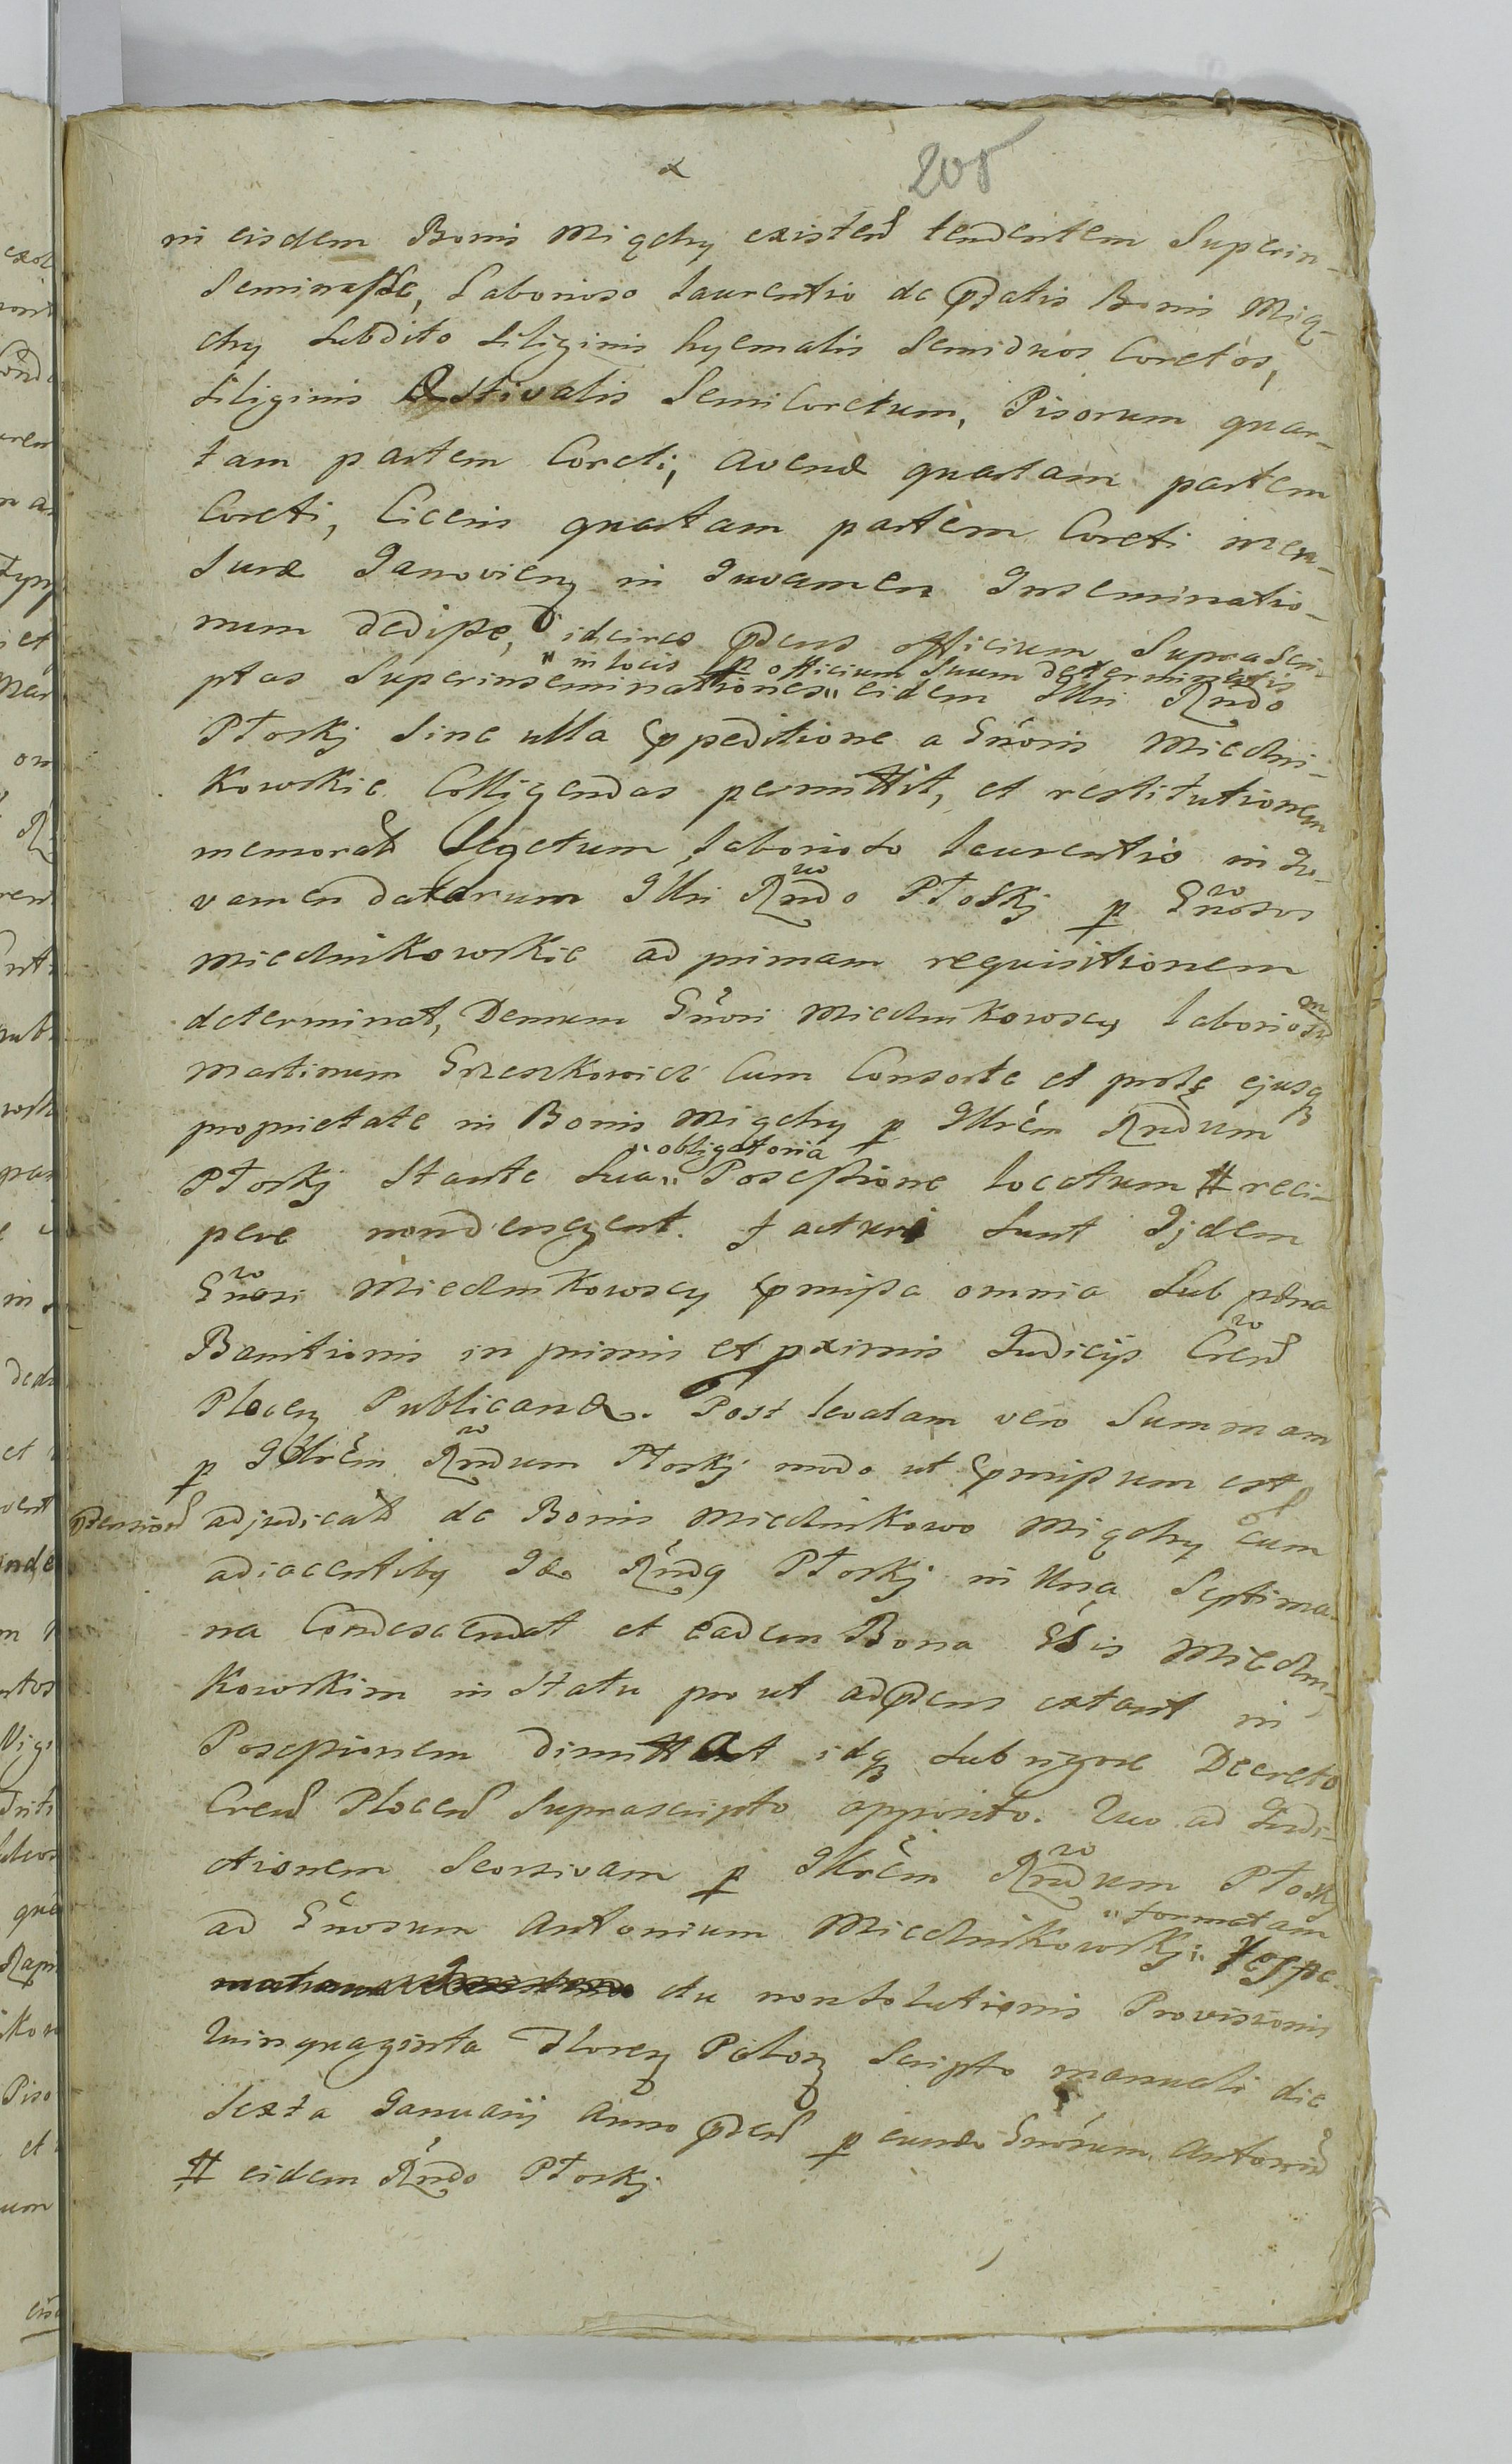 205
in eisdem Bonis Miączy existen tendentem Superin-
seminasse, Laborioso Laurentio de pdatis Bonis Miąc-
zy Subdito Siliginis hyemalis Semiduos Coretos,
Siliginis Æstivalis Semicoretum, Pisorum quar-
tam partem Coreti, avenæ quartam partem
Coreti, Ciceris quartam partem Coreti men-
suræ Janovien in Juvamen Inseminatio-
num dedisse, idcirco pdens officium Suprascri-
" in locis p officium suum determinatis
ptas Superinseminationes " eidem Illri Rndo
Płoskj Sine ulla præpeditione a Gnosis Miechni-
kowskie Colligendas permittit, et restitutionem
memorat Segetum Laborioso Laurentio in Ju-
vamen datarum Illri Rndo Płoskj p Gnosos
Miecznikowskie ad primam requisitionem
determinat, Demum Gnosi Miecznikowscy Laboriosum
Martinum Grzeszkowicz Cum Consorte et prole ejusq
proprietate in Bonis Miączy p Illrem Rndum
" obligatoria
Płoskj Stante Sua " Possessione locatum # reci-
pere non denegent. Facturi Sunt Ijdem
Gnosi Miecznikowscy pmissa omnia Sub pæna
Banitionis in primis et pximis Judicijs Cren
Plocen Publicanda. Post levatam vero Summam
p Illrem Rndum Płoskj modo ut pmissum est
ptensiones adjudicat de Bonis Miecznikowo Miączy cum
adiacentiby Idem Rndq Płoskj in Una Septima-
na Condescendat et eadem Bona Gsis Miechni-
kowskim in Statu pro ut ad pdens extant in
Possessionem dimittat idq Sub rigore Decreto
Cren Plocen Suprascripto apposito. Quo ad Indi-
ctionem Seorsivam p Illrem Rndum Płoskj
" formatam
ad Gnosum Antonium Miecznikowskj " respe-
ctu nonsolutionis Provisionis
Quinquaginta Floren Polon Scripto manuali die
Sexta Januarij Anno pden p eundem Gnosum Antonium
# eidem Rndo Płoskj